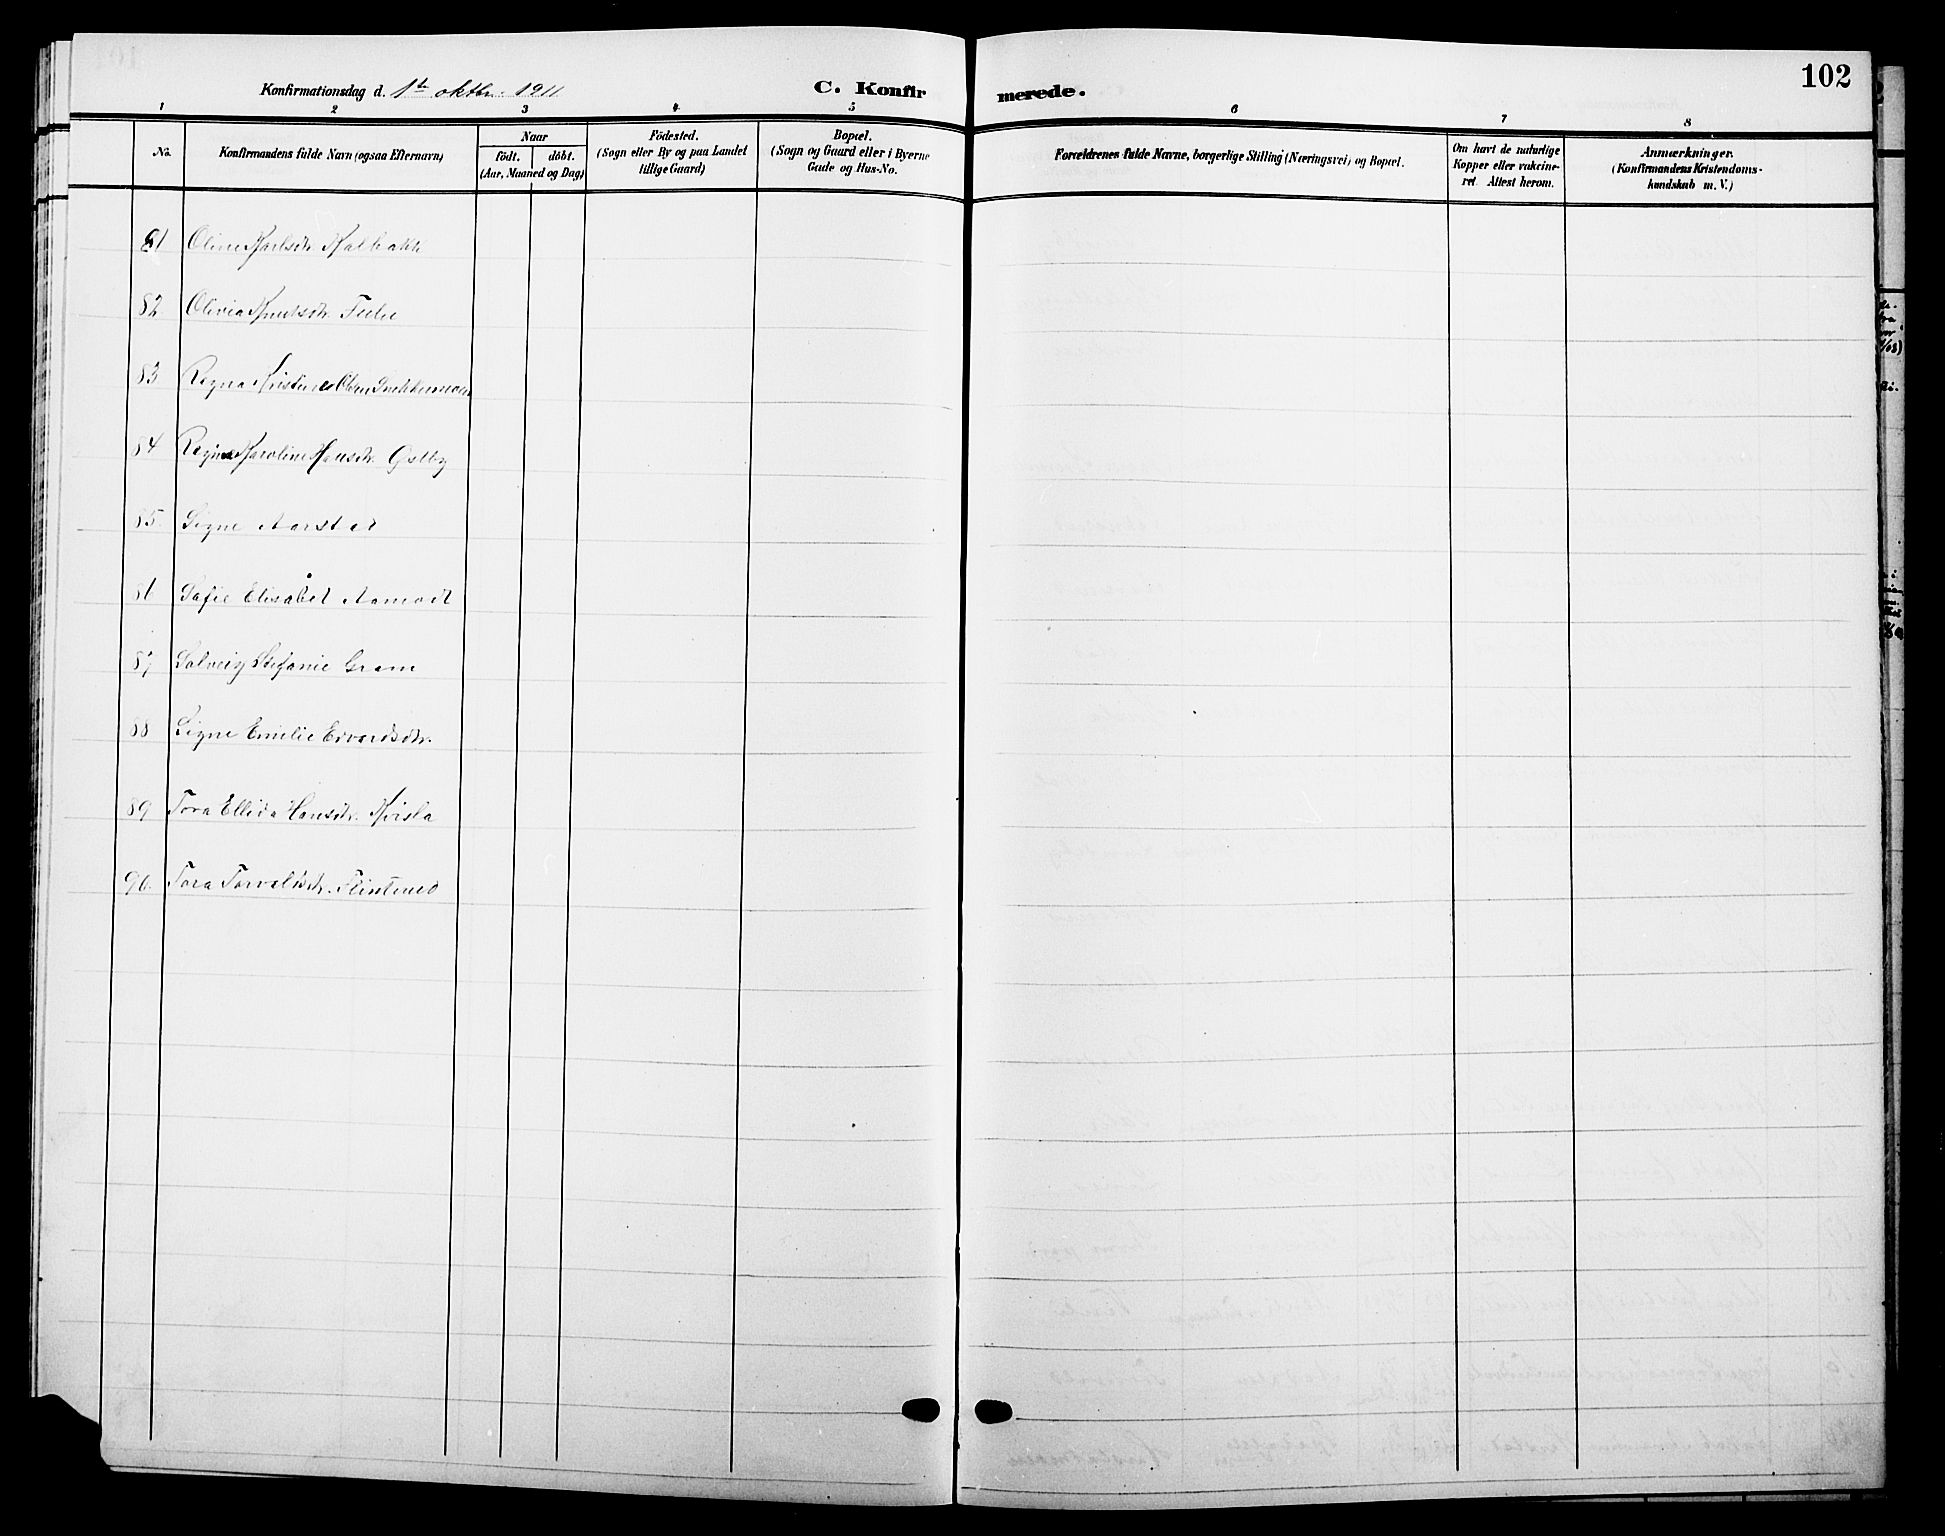 102
Konfirmationsdag d. 1ste oktbr. 1911
C. Konfirmerede.
1 2 3 4 5 6 7 8
No.
Konfirmandens fulde Navn (ogsaa Efternavn)
Naar
födt. döbt.
(Aar, Maaned og Dag)
Födested.
(Sogn eller By og paa Landet
tillige Gaard)
Bopæl.
(Sogn og Gaard eller i Byerne
Gade og Hus-No.
Forældrenes fulde Navne, borgerlige Stilling (Næringsvei) og Bopæl.
Om havt de naturlige
Kopper eller vakcine-
ret. Attest herom.
Anmærkninger.
(Konfirmandens Kristendoms-
kundskab m. V.)
81 Oline Karlsdtr. Kalbakk
82 Olivia Knutsdtr. Tulu
83 Ragna Kristine Olsen
84 Ragna Karoline Hansdtr. Østby
85. Signe Aarstad
86 Safie Elisabet Aamodt
87 Solveig Stefanie Gram
88 Signe Emilie Edvardsdtr.
89 Tora Ellida Hansdtr. Kvisla
90. Tora Torvaldsdtr. Flintmed